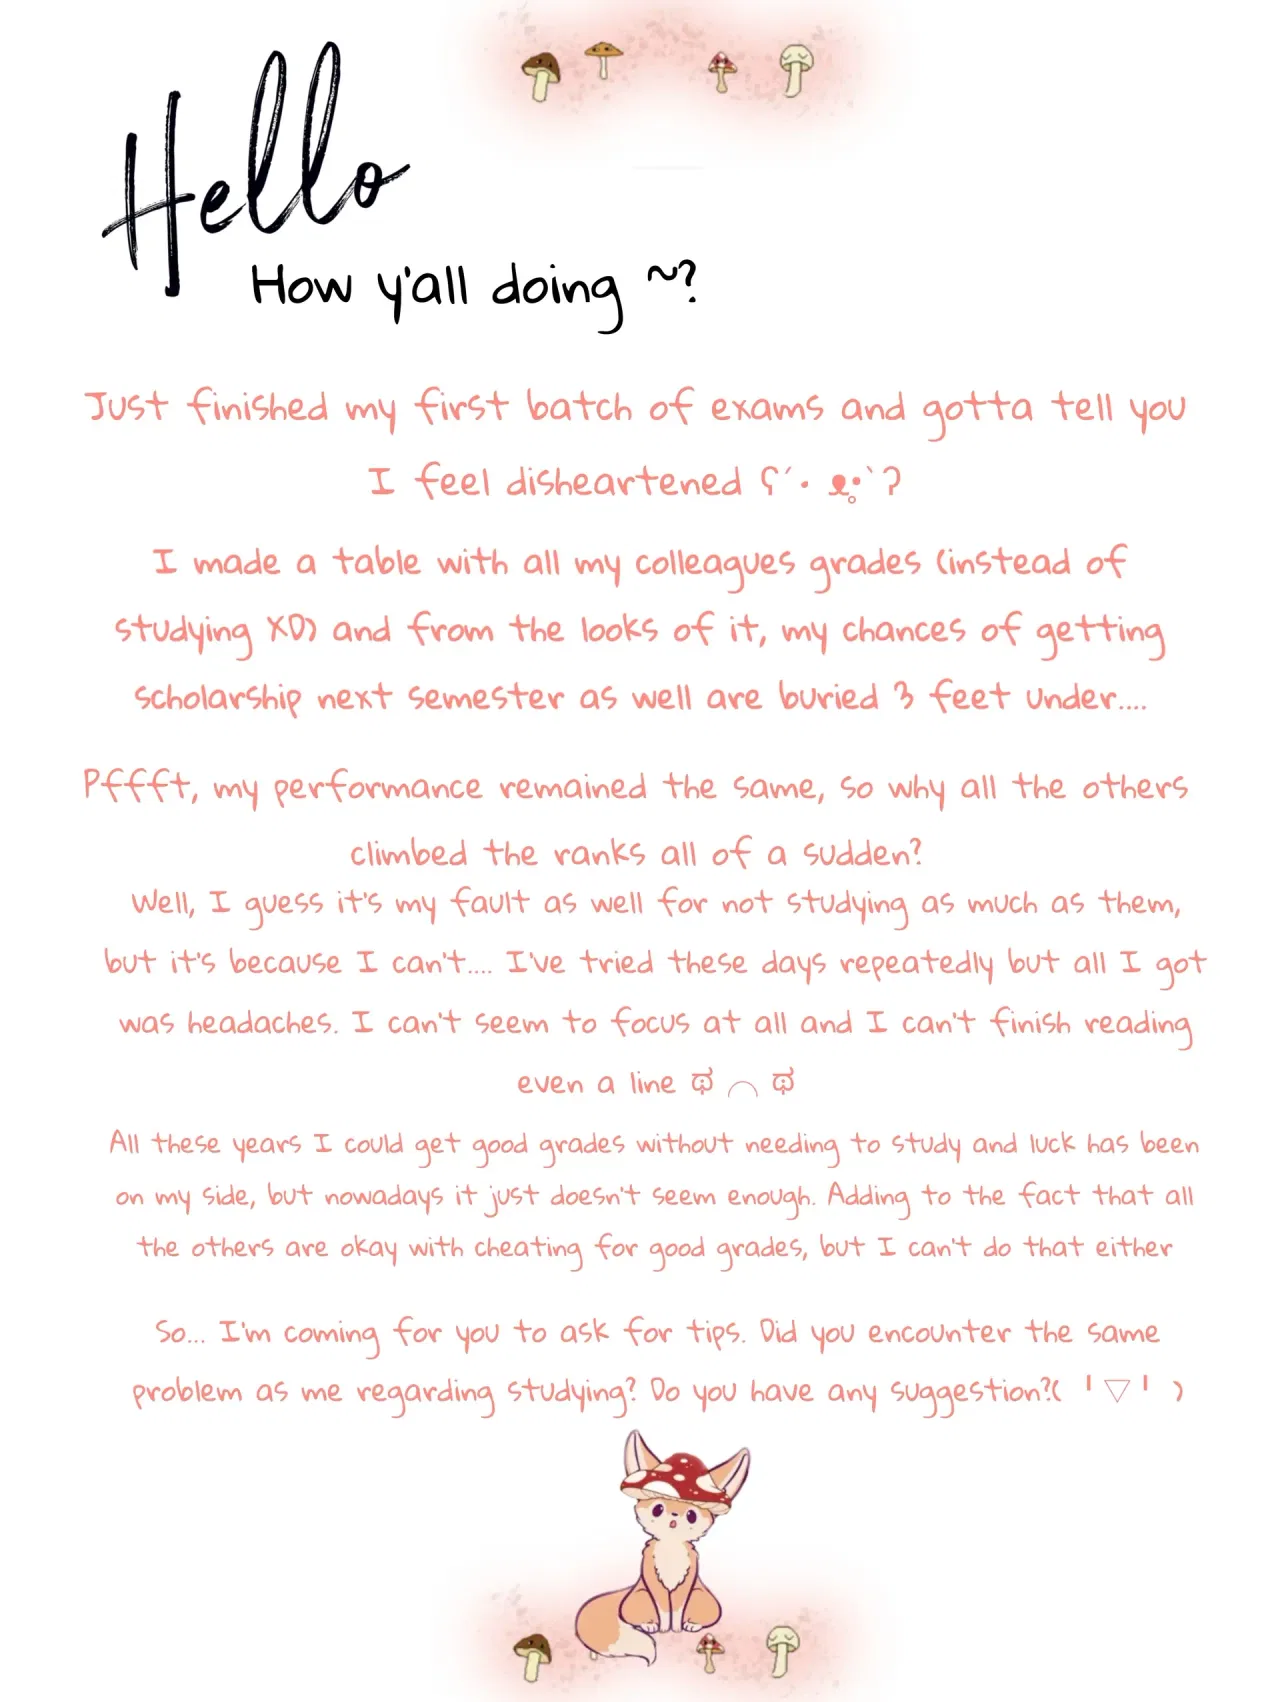 Hello
How y'all doing ~?
Just finished my first batch of exams and gotta tell you
I feel disheartened ʕ´• ᴥ•̥`ʔ
I made a table with all my colleagues grades (instead of
studying XD) and from the looks of it, my chances of getting
scholarship next semester as well are buried 3 feet under....
Pffft, my performance remained the same, so why all the others
climbed the ranks all of a sudden?
Well, I guess it's my fault as well for not studying as much as them,
but it's because I can't.... I've tried these days repeatedly but all I got
was headaches. I can't seem to focus at all and I can't finish reading
even a line ಥ⌒ಥ
All these years I could get good grades without needing to study and luck has been
on my side, but nowadays it just doesn't seem enough. Adding to the fact that all
the others are okay with cheating for good grades, but I can't do that either
So... I'm coming for you to ask for tips. Did you encounter the same
problem as me regarding studying? Do you have any suggestion?( ╹▽╹ )